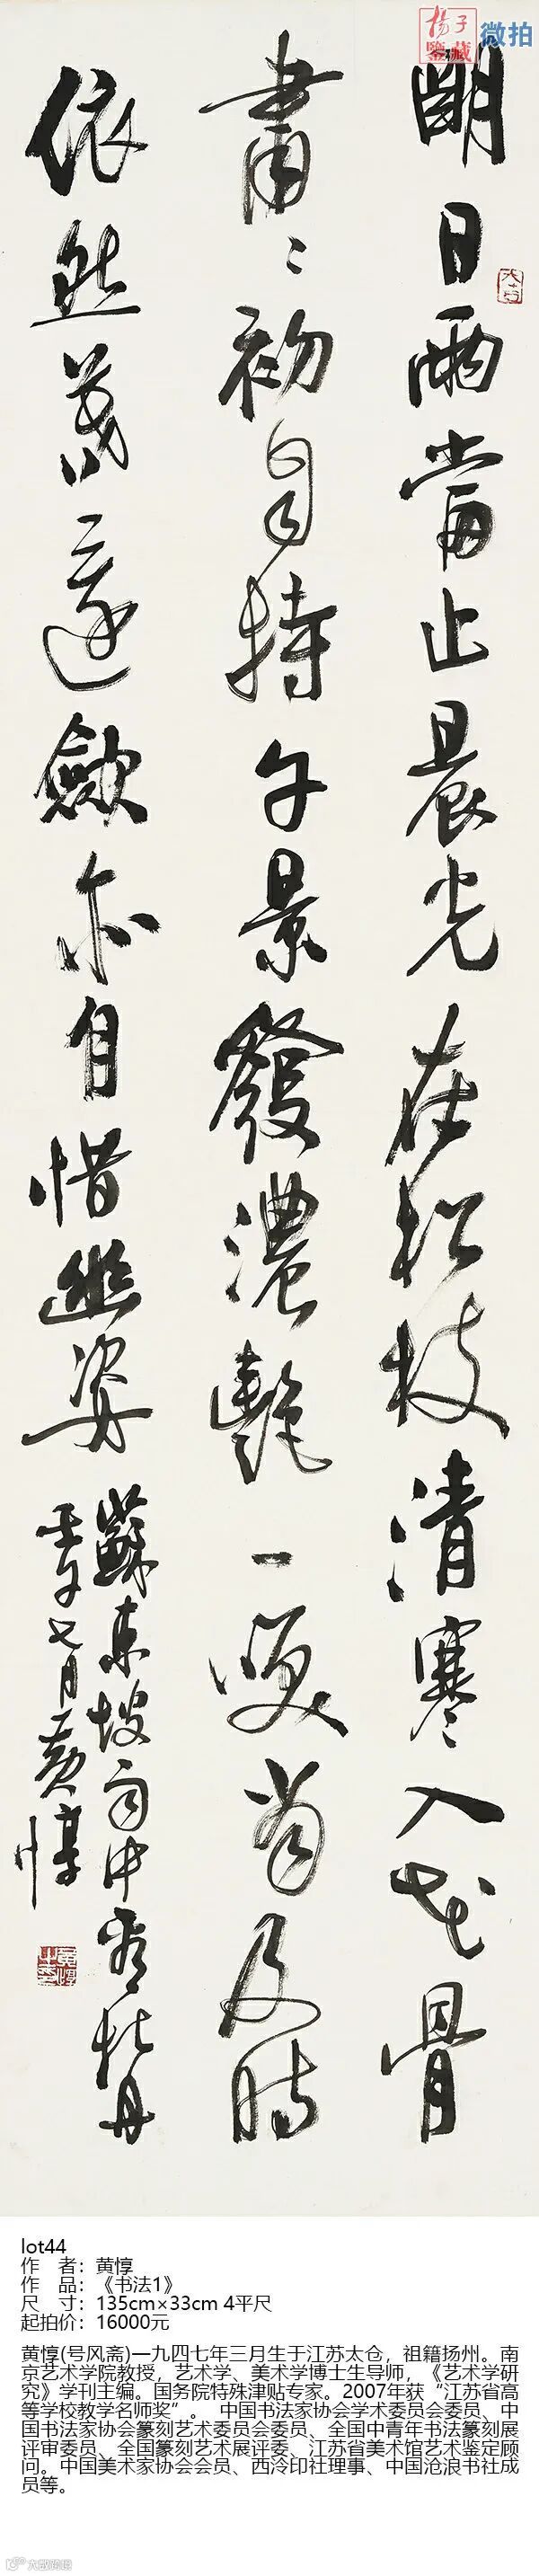 楊子
鑒藏
微拍
明日雨當止晨光在松枝清寒入花骨
大吉
肅〻初自持午景發濃艷一笑當及時
依然暮還斂亦自惜幽姿
蘇東坡雨中看牡丹
壬午七月黃惇
lot44
作 者：黄惇
作 品：《书法1》
尺 寸：135cm×33cm 4平尺
起拍价：16000元
黄惇(号风斋)一九四七年三月生于江苏太仓，祖籍扬州。南
京艺术学院教授，艺术学、美术学博士生导师，《艺术学研
究》学刊主编。国务院特殊津贴专家。2007年获“江苏省高
等学校教学名师奖”。 中国书法家协会学术委员会委员、中
国书法家协会篆刻艺术委员会委员、全国中青年书法篆刻展
评审委员、全国篆刻艺术展评委、江苏省美术馆艺术鉴定顾
问。中国美术家协会会员、西泠印社理事、中国沧浪书社成
员等。